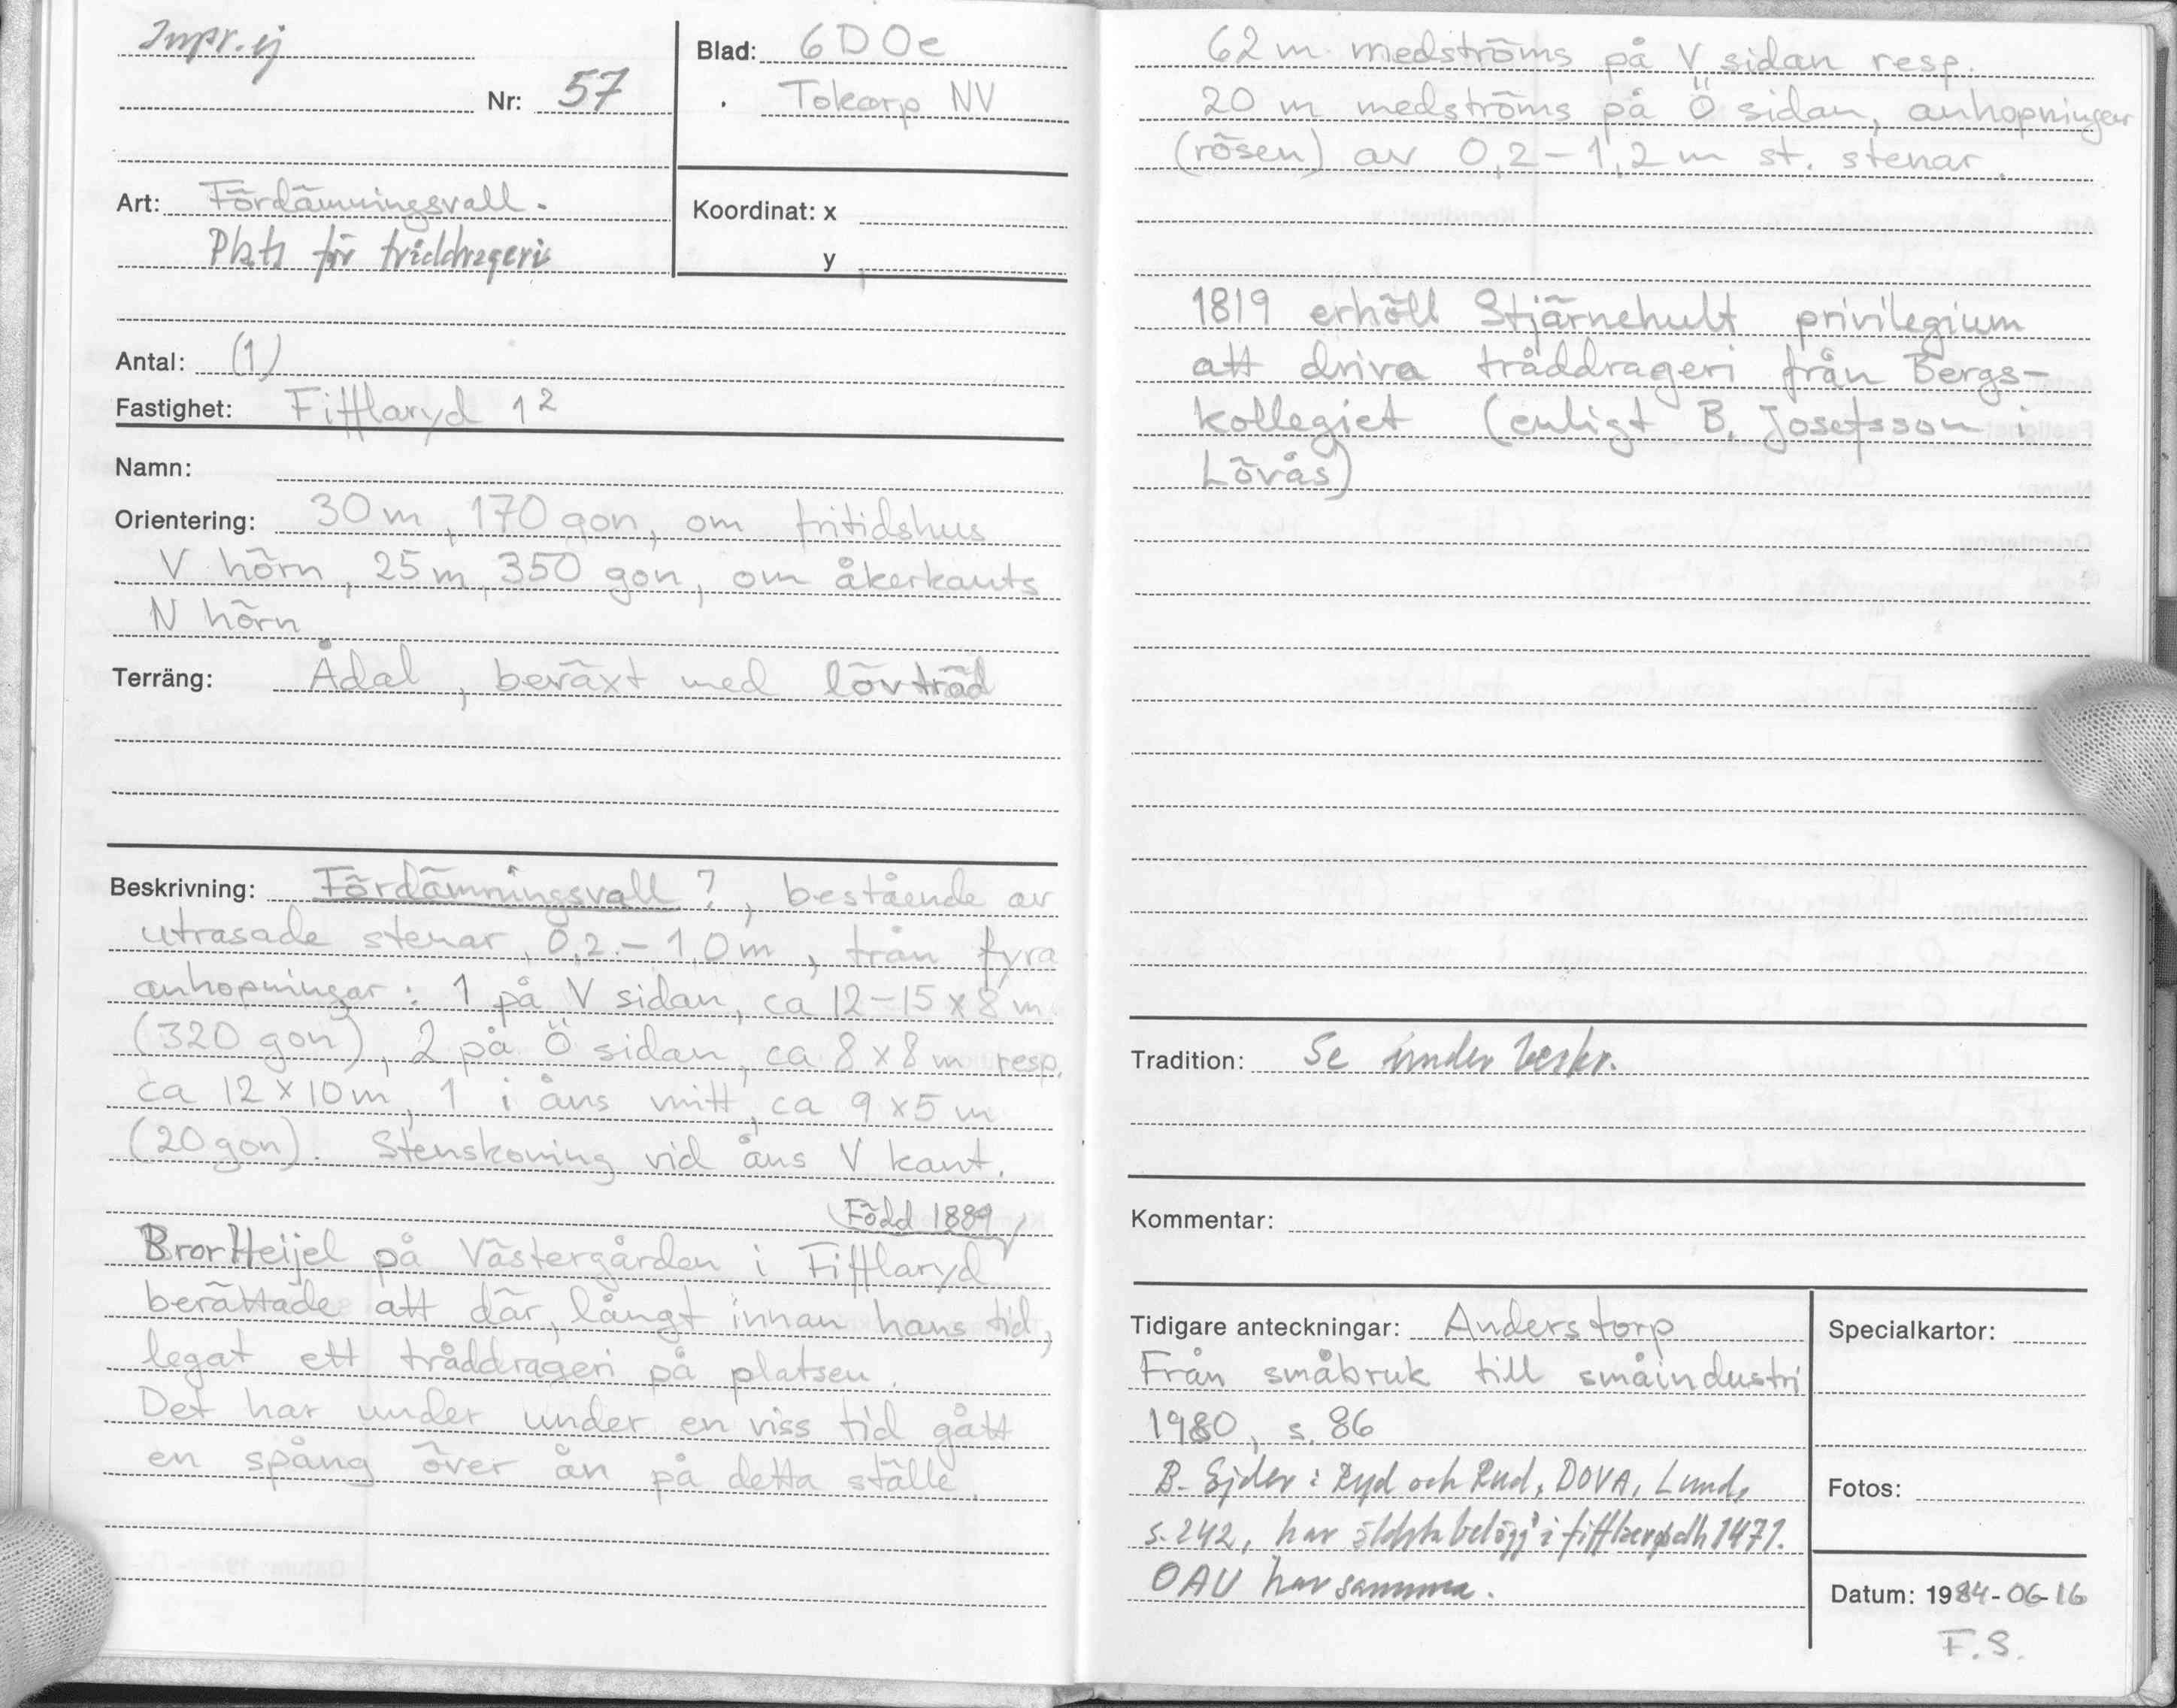 Impr. ej
Nr: 57
Blad: 6D 0e
Tokarp NV
Art: Fördämningsvall.
Plats för tråddrageri
Koordinat: x
y
Antal: (1)
Fastighet: Fifflaryd 1²
Namn:
Orientering: 30 m, 170 gon, om fritidshus
V hörn, 25 m, 350 gon, om åkerkants
N hörn
Terräng: Ådal, beväxt med lövträd
Beskrivning: Fördämningsvall?, bestående av
utrasade stenar, 0,2-1,0 m, från fyra
anhopningar: 1 på V sidan, ca 12-15x8 m
(320 gon), 2 på Ö sidan, ca 8x8 m resp.
ca 12x10 m, 1 i åns mitt, ca 9x5 m
(20 gon). Stenskoning vid åns V kant.
Född 1889
Bror Heijel på Västergården i Fifflaryd
berättade att där, långt innan hans tid,
legat ett tråddrageri på platsen.
Det har under under en viss tid gått
en spång över ån på detta ställe.
62 m medströms på V sidan resp.
20 m medströms på Ö sidan, anhopningar
(rösen) av 0,2-1,2 m st. stenar.
1819 erhöll Stjärnehult privilegium
att driva tråddrageri från Bergs-
kollegiet (enligt B. Josefsson i
Lövås)
Tradition: Se under beskr.
Kommentar:
Tidigare anteckningar: Anderstorp
Från småbruk till småindustri
1980, s. 86
B. Ejder: Ryd och Rud, DOVA, Lund,
s. 242, har äldsta belägg i 1471.
OAU har samma.
Specialkartor:
Fotos:
Datum: 1984-06-16
F.S.